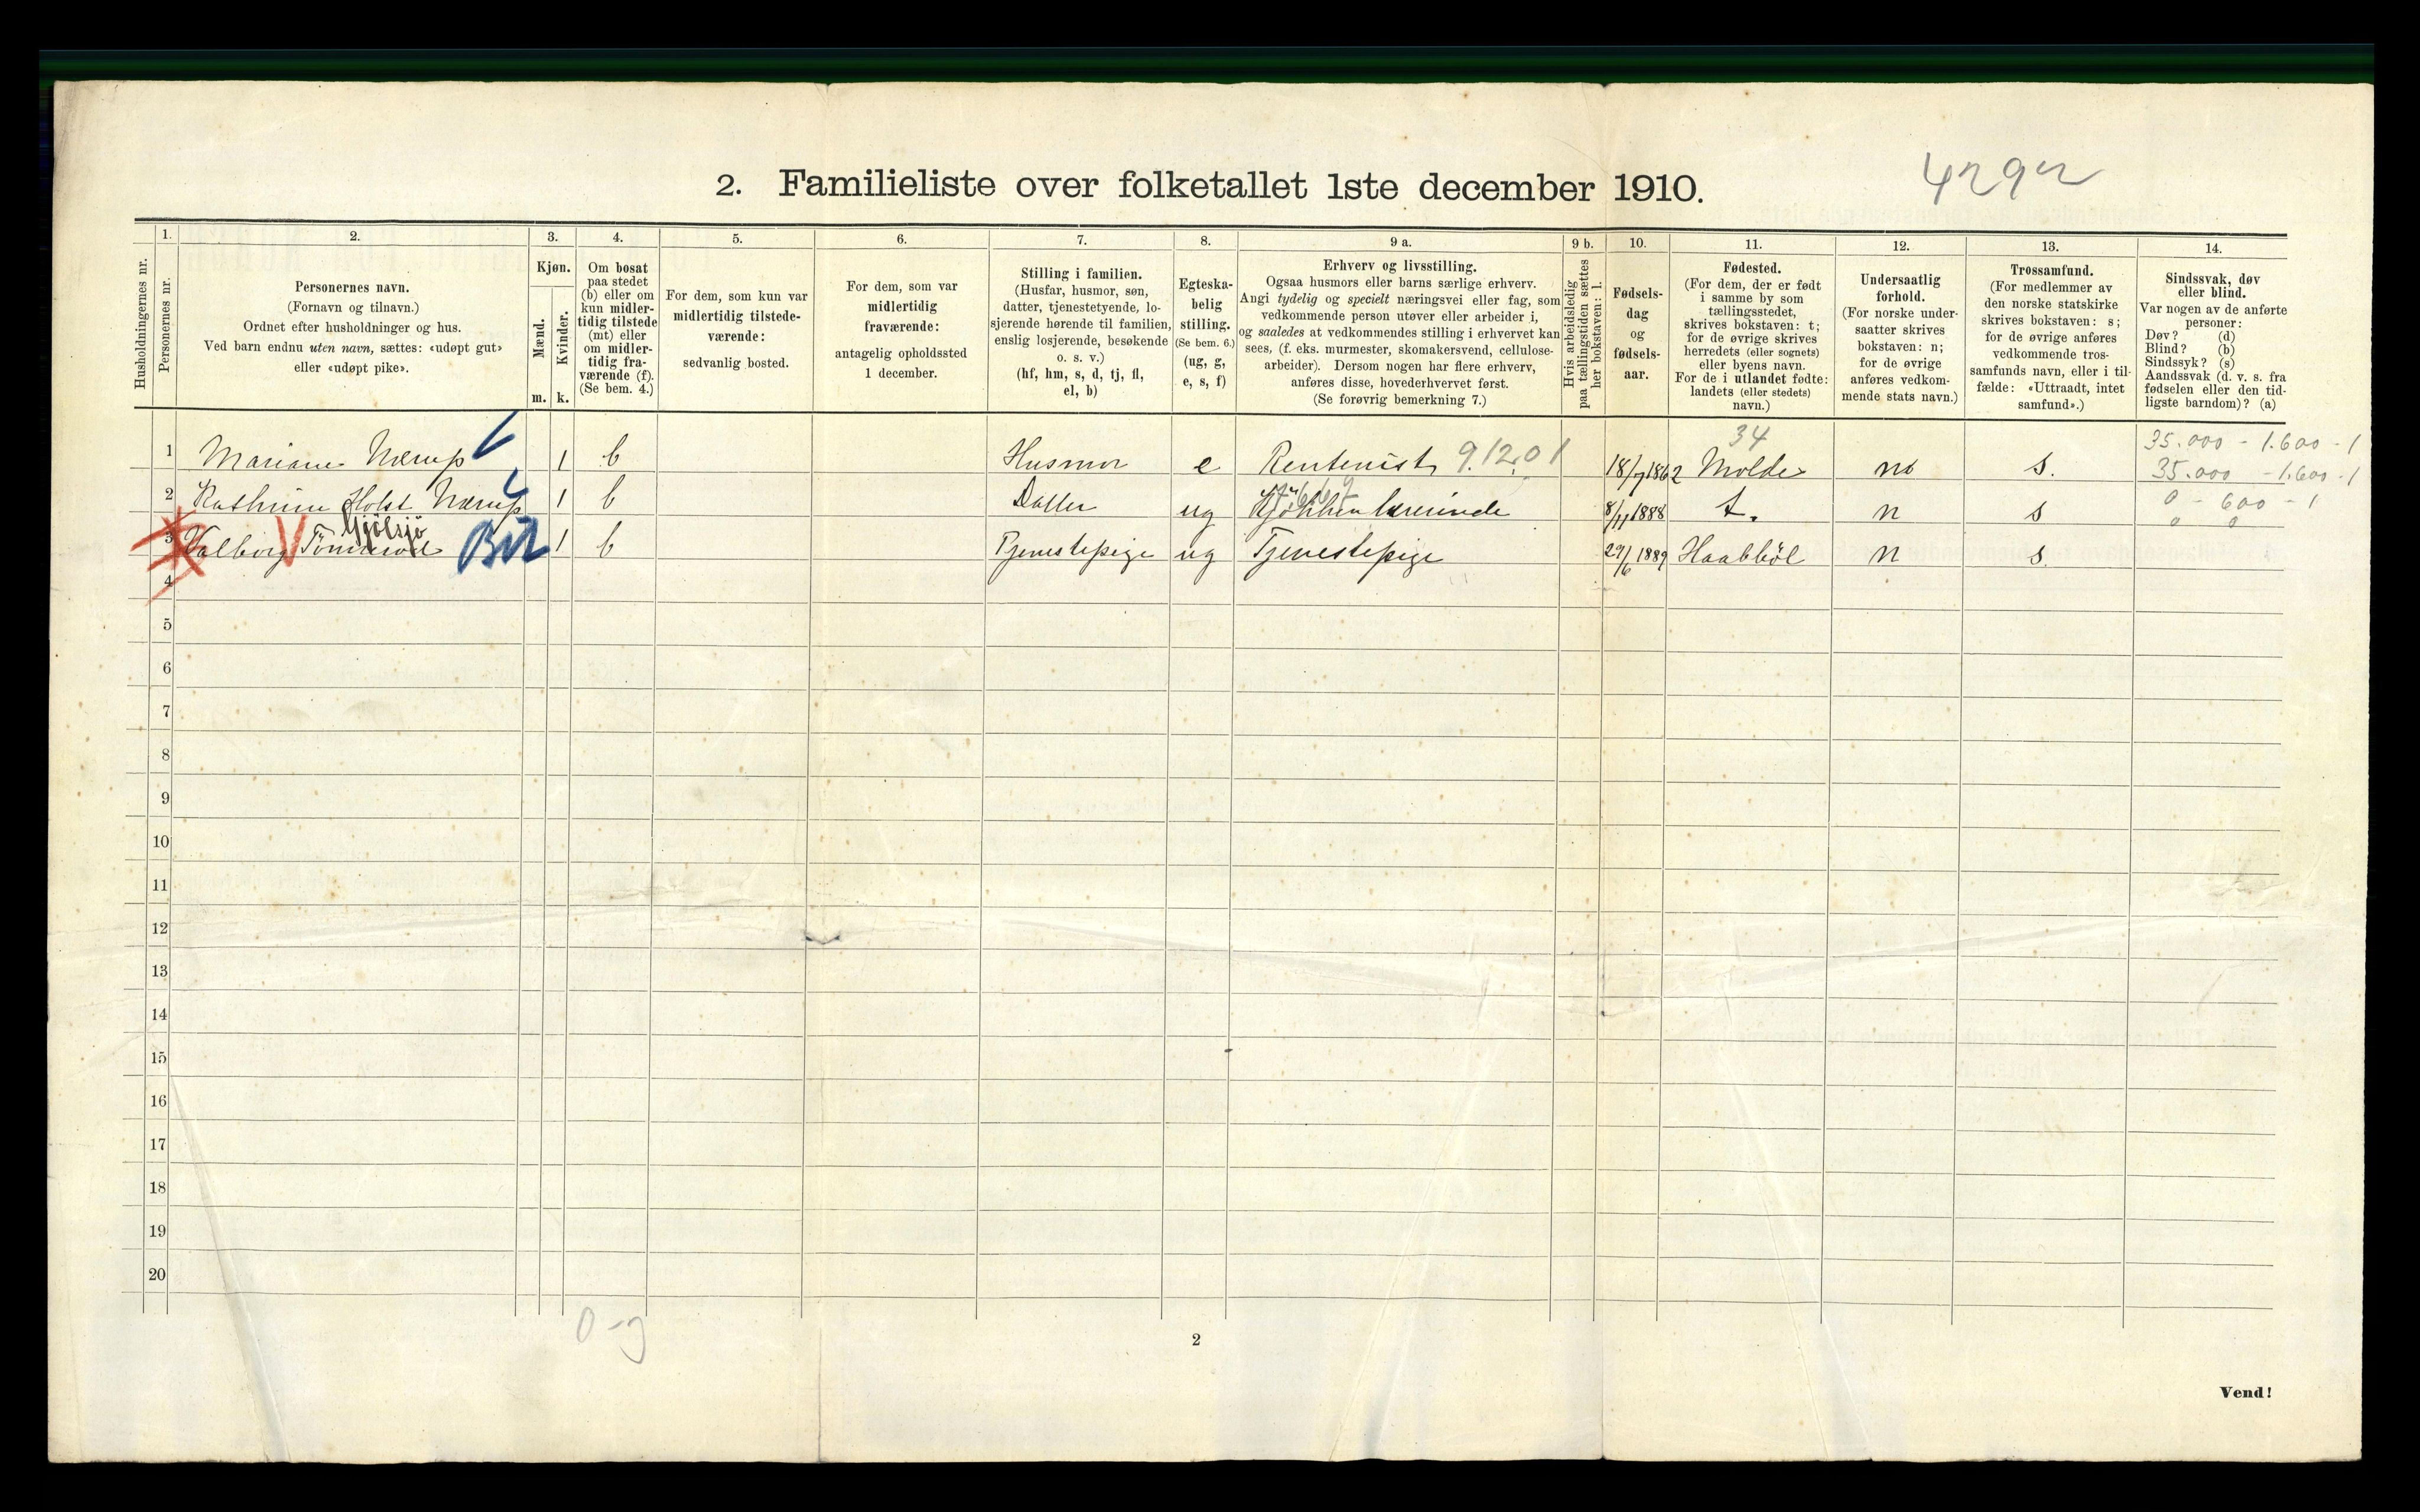 2. Familieliste over folketallet 1ste december 1910.
4292
Husholdningernes nr.
1.
Personernes nr.
2.
Personernes navn.
(Fornavn og tilnavn.)
Ordnet efter husholdninger og hus.
Ved barn endnu uten navn, sættes: «udøpt gut»
eller «udøpt pike».
3.
Kjøn.
Mænd.
Kvinder.
m. k.
4.
Om bosat
paa stedet
(b) eller om
kun midler-
tidig tilstede
(mt) eller
om midler-
tidig fra-
værende (f).
(Se bem. 4.)
5.
For dem, som kun var
midlertidig tilstede-
værende:
sedvanlig bosted.
6.
For dem, som var
midlertidig
fraværende:
antagelig opholdssted
1 december.
7.
Stilling i familien.
(Husfar, husmor, søn,
datter, tjenestetyende, lo-
sjerende hørende til familien,
enslig losjerende, besøkende
o. s. v.)
(hf, hm, s, d, tj, fl,
el, b)
8.
Egteska-
belig
stilling.
(Se bem. 6.)
(ug, g,
e, s, f)
9 a.
Erhverv og livsstilling.
Ogsaa husmors eller barns særlige erhverv.
Angi tydelig og specielt næringsvei eller fag, som
vedkommende person utøver eller arbeider i,
og saaledes at vedkommendes stilling i erhvervet kan
sees, (f. eks. murmester, skomakersvend, cellulose-
arbeider). Dersom nogen har flere erhverv,
anføres disse, hovederhvervet først.
(Se forøvrig bemerkning 7.)
9 b.
Hvis arbeidsledig
paa tællingstiden sættes
her bokstaven: l.
10.
Fødsels-
dag
og
fødsels-
aar.
11.
Fødested.
(For dem, der er født
i samme by som
tællingsstedet,
skrives bokstaven: t;
for de øvrige skrives
herredets (eller sognets)
eller byens navn.
For de i utlandet fødte:
landets (eller stedets)
navn.)
12.
Undersaatlig
forhold.
(For norske under-
saatter skrives
bokstaven: n;
for de øvrige
anføres vedkom-
mende stats navn.)
13.
Trossamfund.
(For medlemmer av
den norske statskirke
skrives bokstaven: s;
for de øvrige anføres
vedkommende tros-
samfunds navn, eller i til-
fælde: «Uttraadt, intet
samfund».)
14.
Sindssvak, døv
eller blind.
Var nogen av de anførte
personer:
Døv? (d)
Blind? (b)
Sindssyk? (s)
Aandssvak (d. v. s. fra
fødselen eller den tid-
ligste barndom)? (a)
34
35.000 - 1.600 - 1
1 Mariane Nærup 1 b Husmor e Rentenist 9.12.01 18/7 1862 Molde no s. 35.000 - 1.600 - 1
2 Kathrine Holst Nærup 1 b Datter ug Kjökkenlærerinde 8/11 1888 t. n s 0 - 600 - 1
Gjölsjö 0 0
3 Valborg V Tönnerød 1 b Tjenestepige ug Tjenestepige 29/6 1889 Haabböl n s.
4
5
6
7
8
9
10
11
12
13
14
15
16
17
18
19
20
0-3
2
Vend!